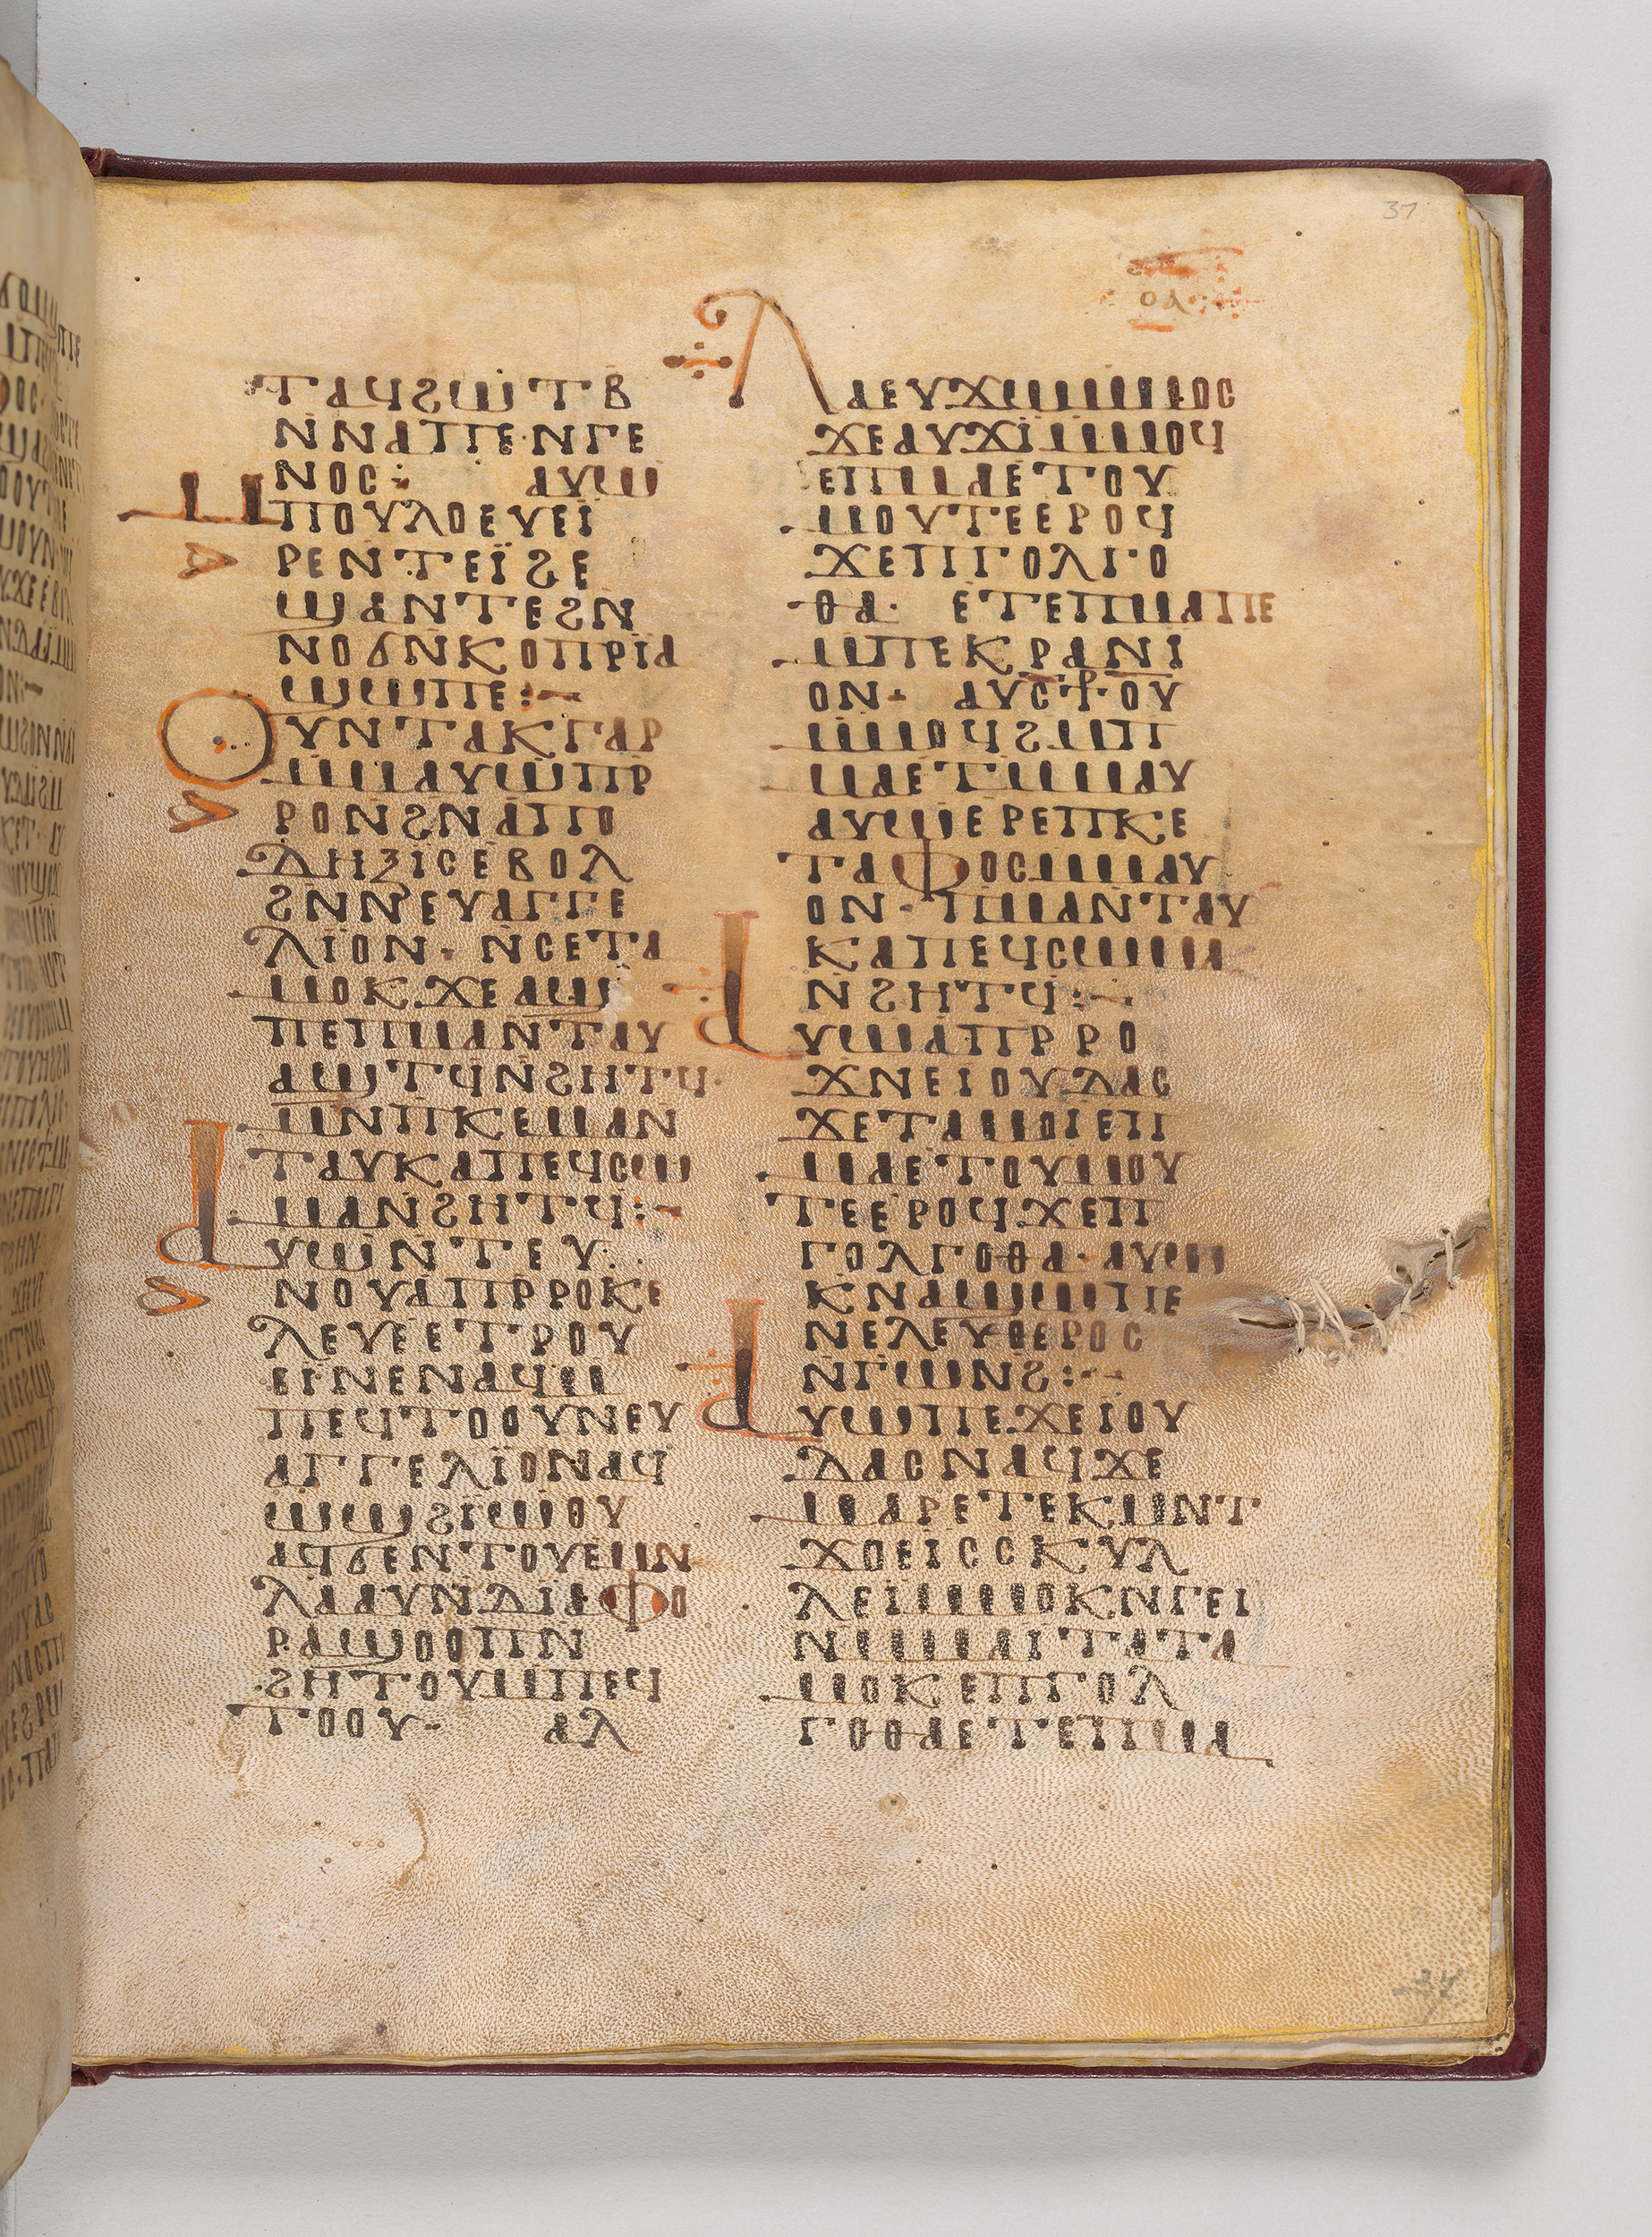 ⲧⲁϥϩⲱⲧⲃ
ⲛⲛⲁⲡⲉⲛⲅⲉ
ⲛⲟⲥ: ⲁⲩⲱ
ⲙⲡⲟⲩⲗⲟⲉⲩⲉⲓ
ⲣⲉⲛⲧⲉⲓ̈ϩⲉ
ϣⲁⲛⲧⲉϩⲛ
ⲛⲟϭⲛⲕⲟⲡⲣⲓ̈ⲁ
ϣⲱⲡⲉ:-
ⲟⲩⲛⲧⲁⲕⲅⲁⲣ
ⲙⲙⲁⲩⲱⲡⲣ
ⲣⲟⲛϩⲛⲁⲡⲟ
ⲇⲏⲝⲓⲥⲉⲃⲟⲗ
ϩⲛⲛⲉⲩⲁⲅⲅⲉ
ⲗⲓⲟⲛ· ⲛⲥⲉⲧⲁ
ⲙⲟⲕϫⲉⲁϣ
ⲡⲉⲡⲙⲁⲛⲧⲁⲩ
ⲁϣⲧϥⲛϩⲏⲧϥ·
ⲙⲛⲡⲕⲉⲙⲁⲛ
ⲧⲁⲩⲕⲁⲡⲉϥⲥⲱ
ⲙⲁⲛϩⲏⲧϥ:-
ⲁⲩⲱⲛⲧⲉⲩ
ⲛⲟⲩⲁⲡⲣⲣⲟⲕⲉ
ⲗⲉⲩⲉⲉⲧⲣⲟⲩ
ⲉⲓⲛⲉⲛⲁϥⲙ
ⲡⲉϥⲧⲟⲟⲩⲛⲉⲩ
ⲁⲅⲅⲉⲗⲓ̈ⲟⲛⲁϥ
ⲱϣϩⲓⲱⲟⲩ
ⲁϥϭⲉⲛⲧⲟⲩⲉⲙⲛ
ⲗⲁⲁⲩⲛⲇⲓⲁⲫⲟ
ⲣⲁϣⲟⲟⲡⲛ
ϩⲏⲧⲟⲩⲙⲡⲉϥ
ⲧⲟⲟⲩ- ⲁⲗ
ⲗⲁⲉⲩϫⲱⲙⲙⲟⲥ
ϫⲉⲁⲩϫⲓⲙⲙⲟϥ
ⲉⲡⲙⲁⲉⲧⲟⲩ
ⲙⲟⲩⲧⲉⲉⲣⲟϥ
ϫⲉⲡⲅⲟⲗⲅⲟ
ⲑⲁ· ⲉⲧⲉⲡⲙⲁⲡⲉ
ⲙⲡⲉⲕⲣⲁⲛⲓ
ⲟⲛ· ⲁⲩⲥ⳨ⲟⲩ
ⲙⲙⲟϥϩⲙⲡ
ⲙⲁⲉⲧⲙⲙⲁⲩ
ⲁⲩⲱⲉⲣⲉⲡⲕⲉ
ⲧⲁⲫⲟⲥⲙⲙⲁⲩ
ⲟⲛ· ⲡⲙⲁⲛⲧⲁⲩ
ⲕⲁⲡⲉϥⲥⲱⲙⲁ
ⲛϩⲏⲧϥ:-
ⲁⲩⲱⲁⲡⲣⲣⲟ
ϫⲛⲉⲓⲟⲩⲇⲁⲥ
ϫⲉⲧⲁⲙⲟⲓⲉⲡ
ⲙⲁⲉⲧⲟⲩⲙⲟⲩ
ⲧⲉⲉⲣⲟϥϫⲉⲡ
ⲅⲟⲗⲅⲟⲑⲁ· ⲁⲩⲱ
ⲕⲛⲁϣⲱⲡⲉ
ⲛⲉⲗⲉⲩⲑⲉⲣⲟⲥ
ⲛⲅⲱⲛϩ:-
ⲁⲩⲱⲡⲉϫⲉⲓⲟⲩ
ⲇⲁⲥⲛⲁϥϫⲉ
ⲙⲁⲣⲉⲧⲉⲕⲙⲛⲧ
ϫⲟⲉⲓⲥⲥⲕⲩⲗ
ⲗⲉⲓⲙⲙⲟⲕⲛⲅⲉⲓ
ⲛⲙⲙⲁⲓⲧⲁⲧⲁ
ⲙⲟⲕⲉⲡⲅⲟⲗ
ⲅⲟⲑⲁⲉⲧⲉⲡⲙⲁ
ⲟⲁ
37